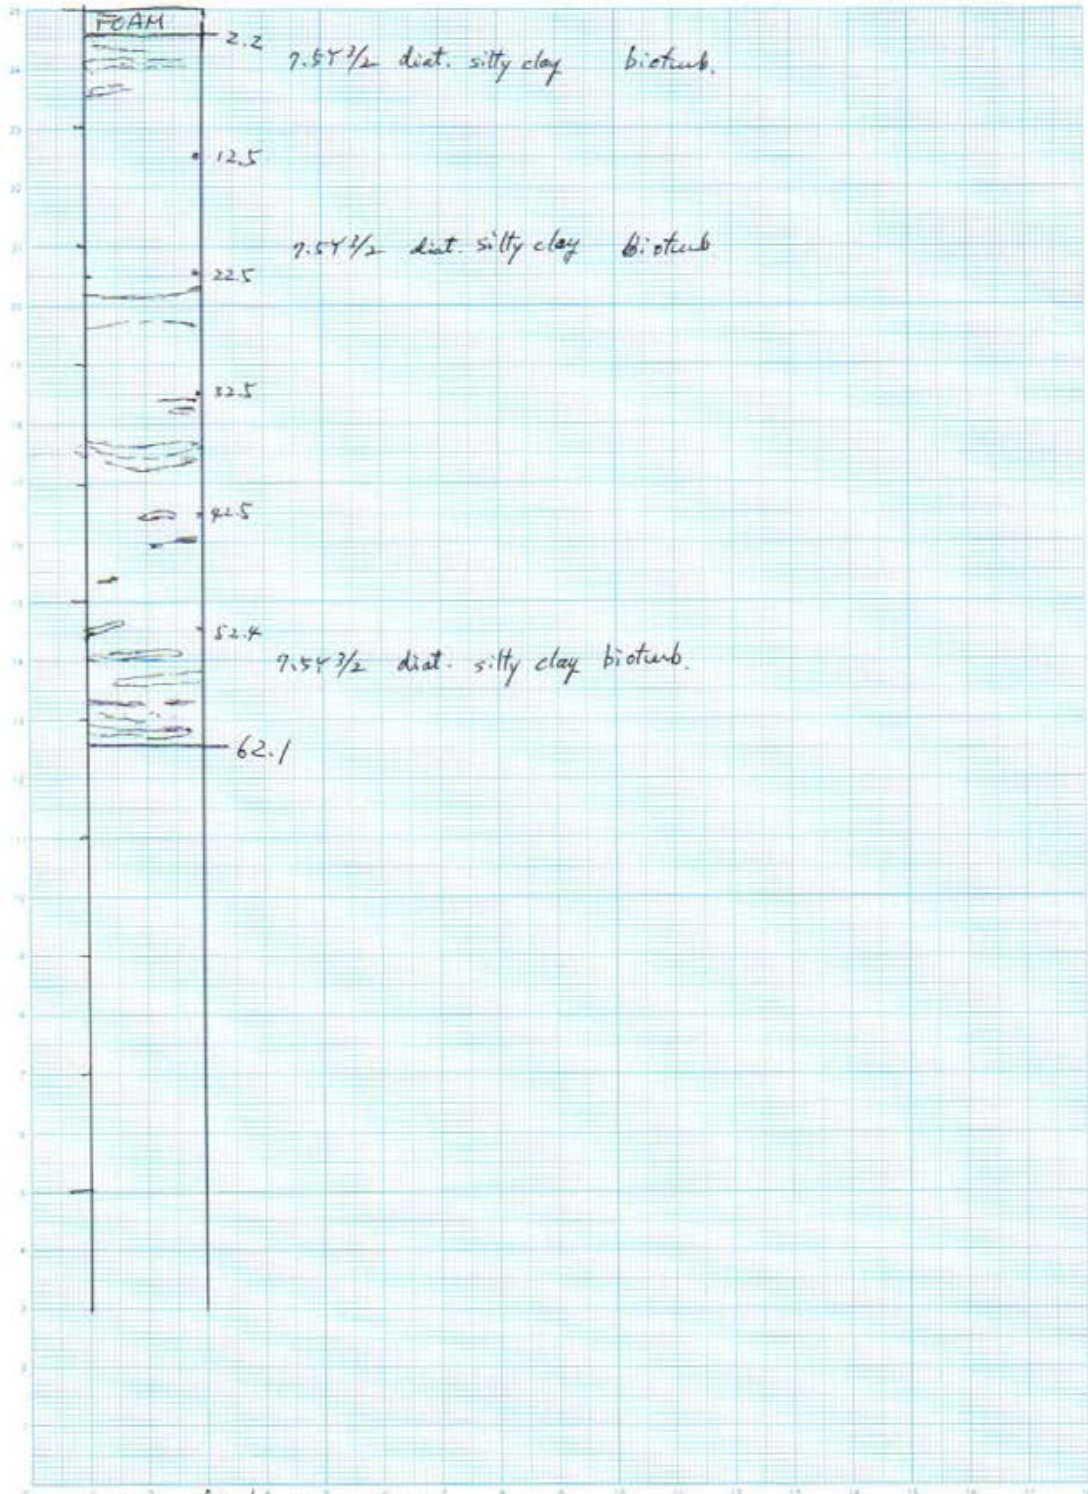 FOAM
2.2
7.5Y 3/2 diat. silty clay bioturb.
12.5
7.5Y 3/2 diat. silty clay bioturb
22.5
32.5
42.5
52.4
7.5Y 3/2 diat. silty clay bioturb.
62.1